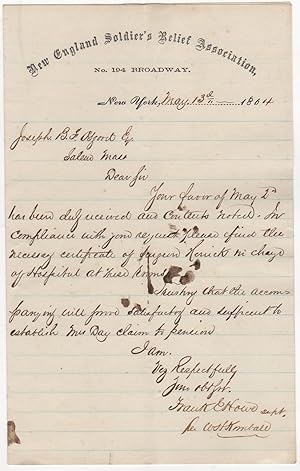 New England Soldier's Relief Association,
No. 194 BROADWAY.
New York, May 13th 1864
Joseph B. F. Osgood Esq
Salem Mass
Dear Sir
Your favor of May 2d
has been duly received and Contents noted. In
Compliance with your request please find the
necessary certificate of Surgeon in charge
of Hospital at these Rooms
Trusting that the accom
panying will prove satisfactory and sufficient to
establish Mrs Day claim to pension
I am.
Very Respectfully
Your obt Svt.
Frank E Howe Supt.
per Kimball